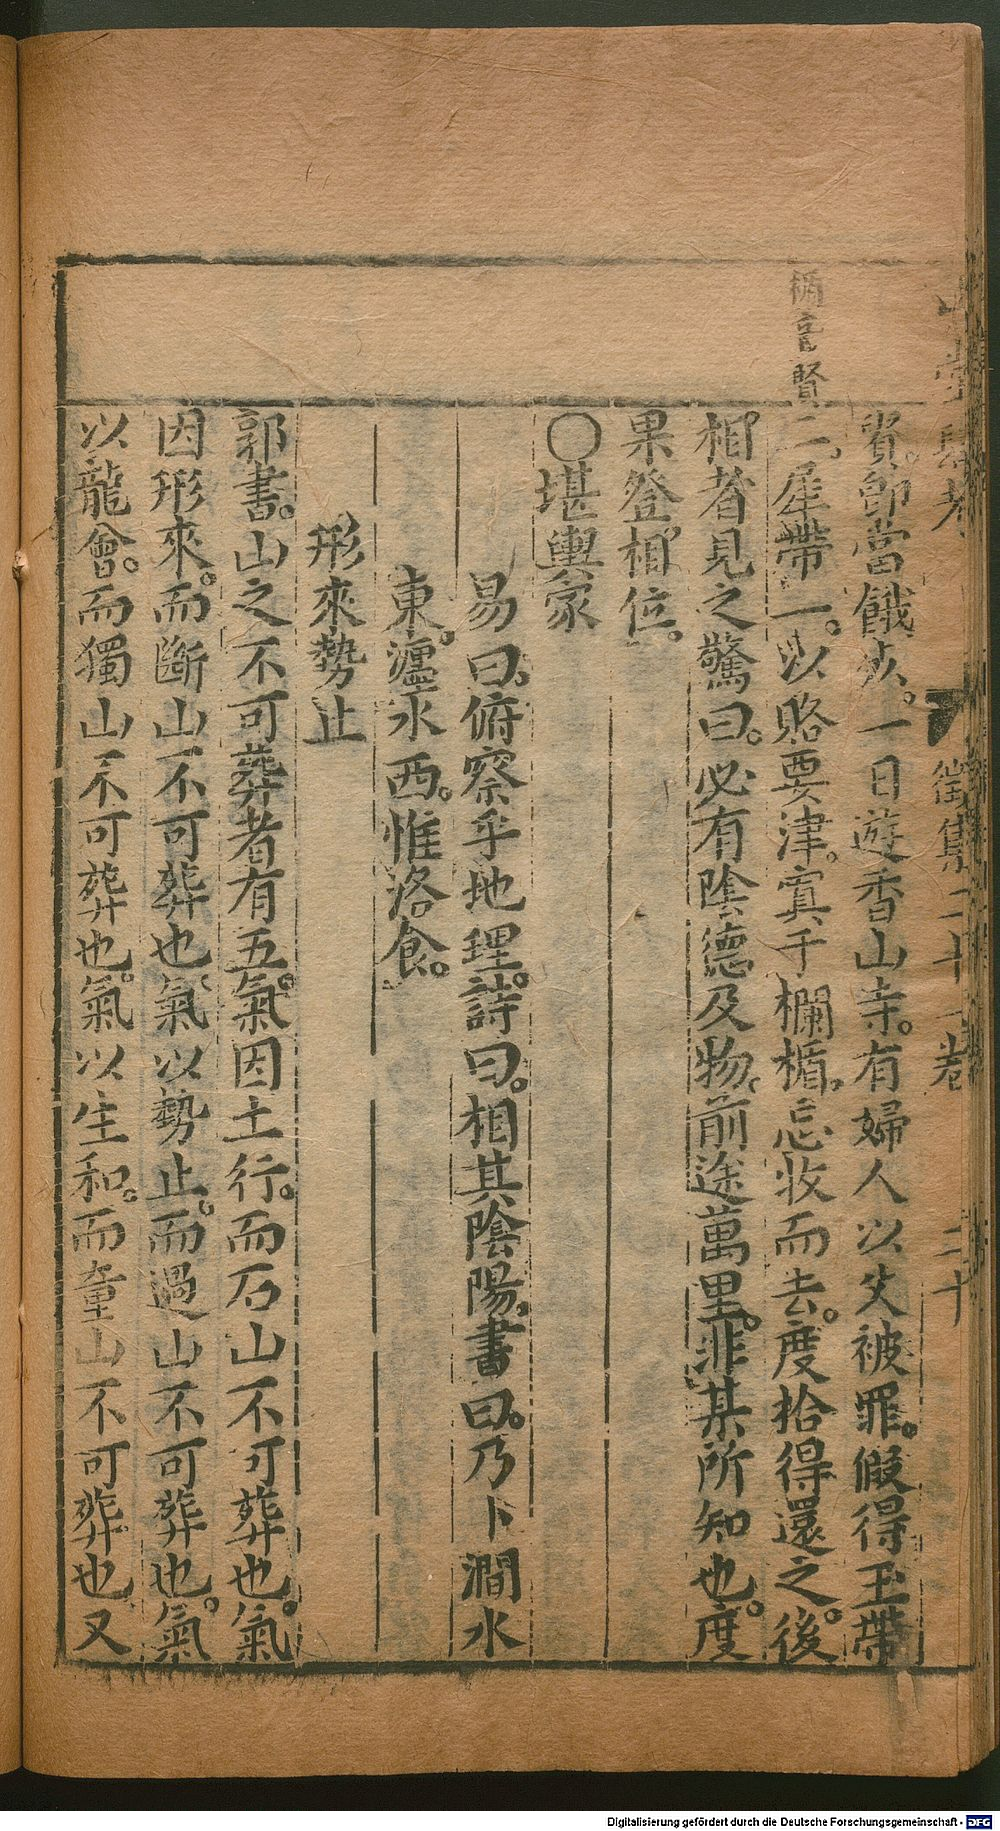 山堂肆考
徵集二十一卷
二十
楯音賢
貲即當餓死。一日遊香山寺。有婦人以父被罪。假得玉帶
二。犀帶一。以賂要津。寘于欄楯。忘收而去。度拾得還之。後
相者見之驚曰。必有陰德及物。前途萬里。非某所知也。度
果登相位。
〇堪輿家
易曰。俯察乎地理。詩曰。相其陰陽。書曰。乃卜澗水
東。瀍水西。惟洛食。
形來勢止
郭書。山之不可葬者有五。氣因土行。而石山不可葬也。氣
因形來。而斷山不可葬也。氣以勢止。而過山不可葬也。氣
以龍會。而獨山不可葬也。氣以生和。而童山不可葬也又
Digitalisierung gefördert durch die Deutsche Forschungsgemeinschaft - DFG